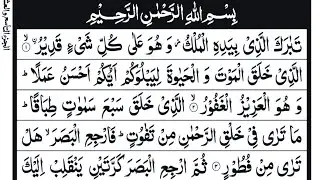 بِسْمِ اللهِ الرَّحْمٰنِ الرَّحِيْمِ
تَبٰرَكَ الَّذِىْ بِيَدِهِ الْمُلْكُ وَ هُوَ عَلٰى كُلِّ شَىْءٍ قَدِيْرُ ۙ﴿۱﴾
الَّذِىْ خَلَقَ الْمَوْتَ وَ الْحَيٰوةَ لِيَبْلُوَكُمْ اَيُّكُمْ اَحْسَنُ عَمَلًا ؕ
وَ هُوَ الْعَزِيْزُ الْغَفُوْرُ ۙ﴿۲﴾ الَّذِىْ خَلَقَ سَبْعَ سَمٰوٰتٍ طِبَاقًا ؕ
مَا تَرٰى فِىْ خَلْقِ الرَّحْمٰنِ مِنْ تَفٰوُتٍ ؕ فَارْجِعِ الْبَصَرَ ۙ هَلْ
تَرٰى مِنْ فُطُوْرٍ ﴿۳﴾ ثُمَّ ارْجِعِ الْبَصَرَ كَرَّتَيْنِ يَنْقَلِبْ اِلَيْكَ